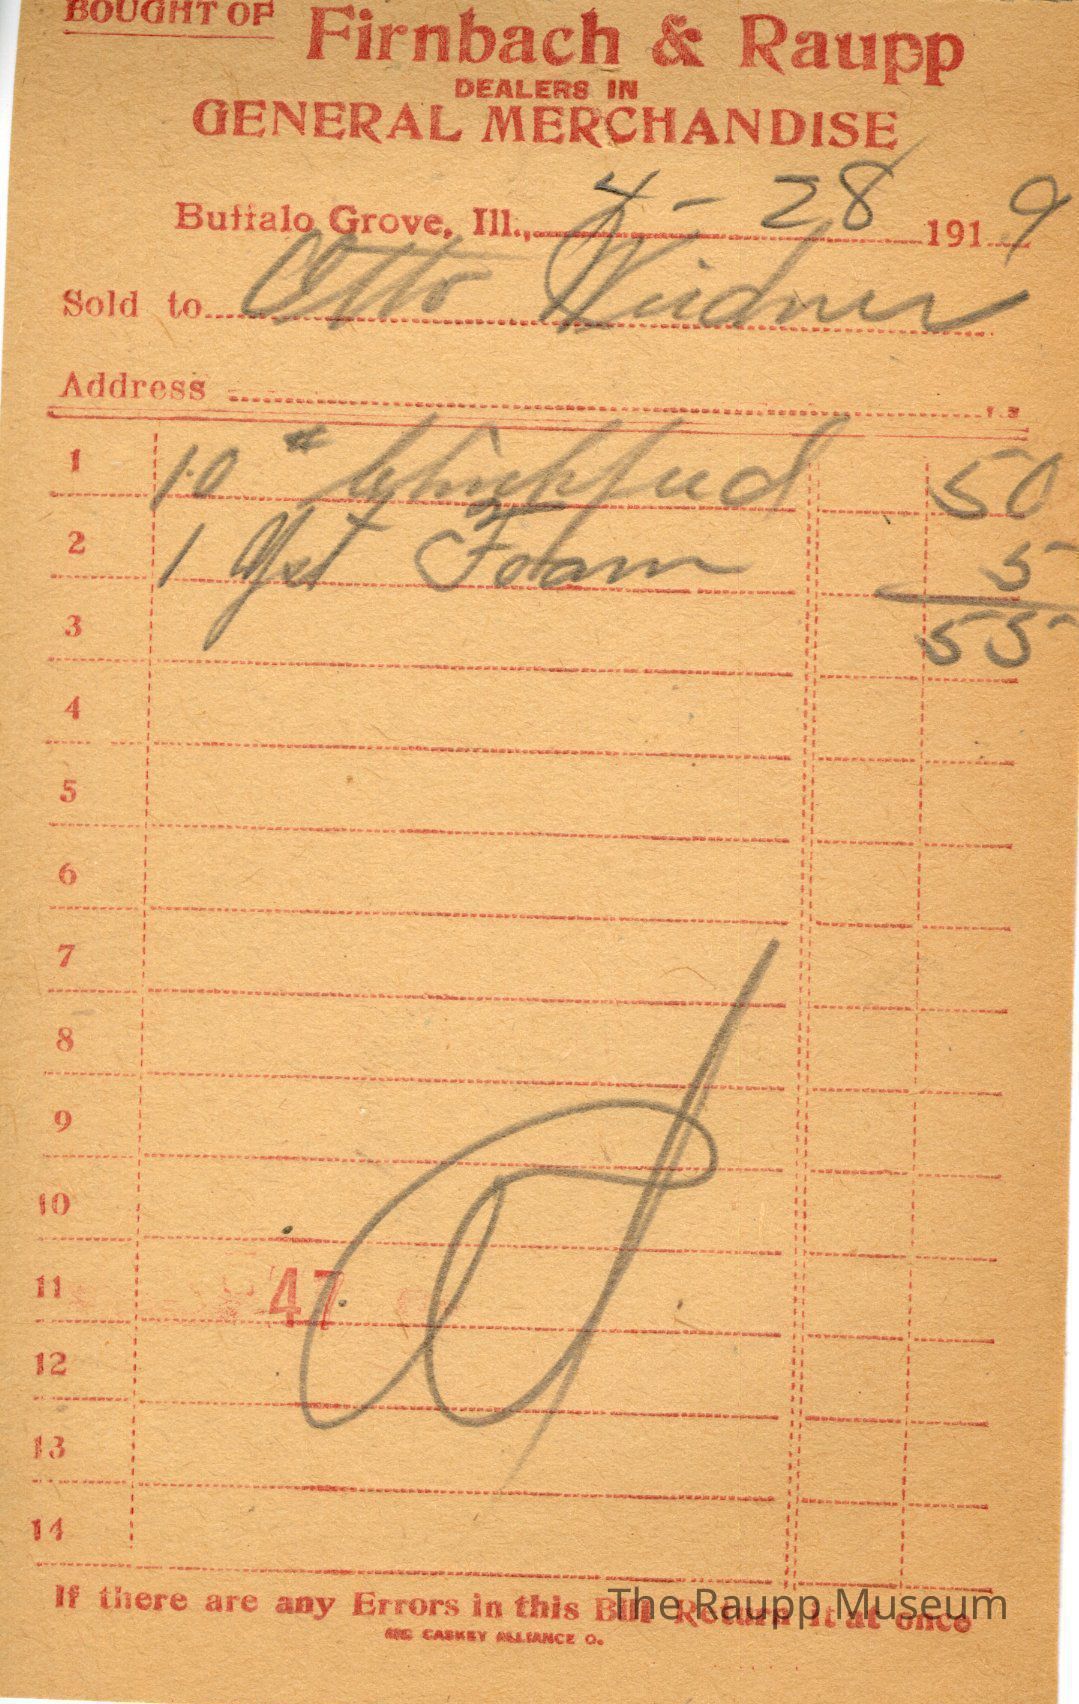 BOUGHT OF
Firnbach & Raupp
DEALERS IN
GENERAL MERCHANDISE
Buffalo Grove, Ill., 4-28 1919
Sold to Otto Weidner
Address
1 10 # Chickfeed 50
2 1 Yst Foam 5
3 55
4
5
6
7
8
9
10
11 47
12
13
14
If there are any Errors in this Bill Return it at once
The Raupp Museum
CASKEY ALLIANCE O.